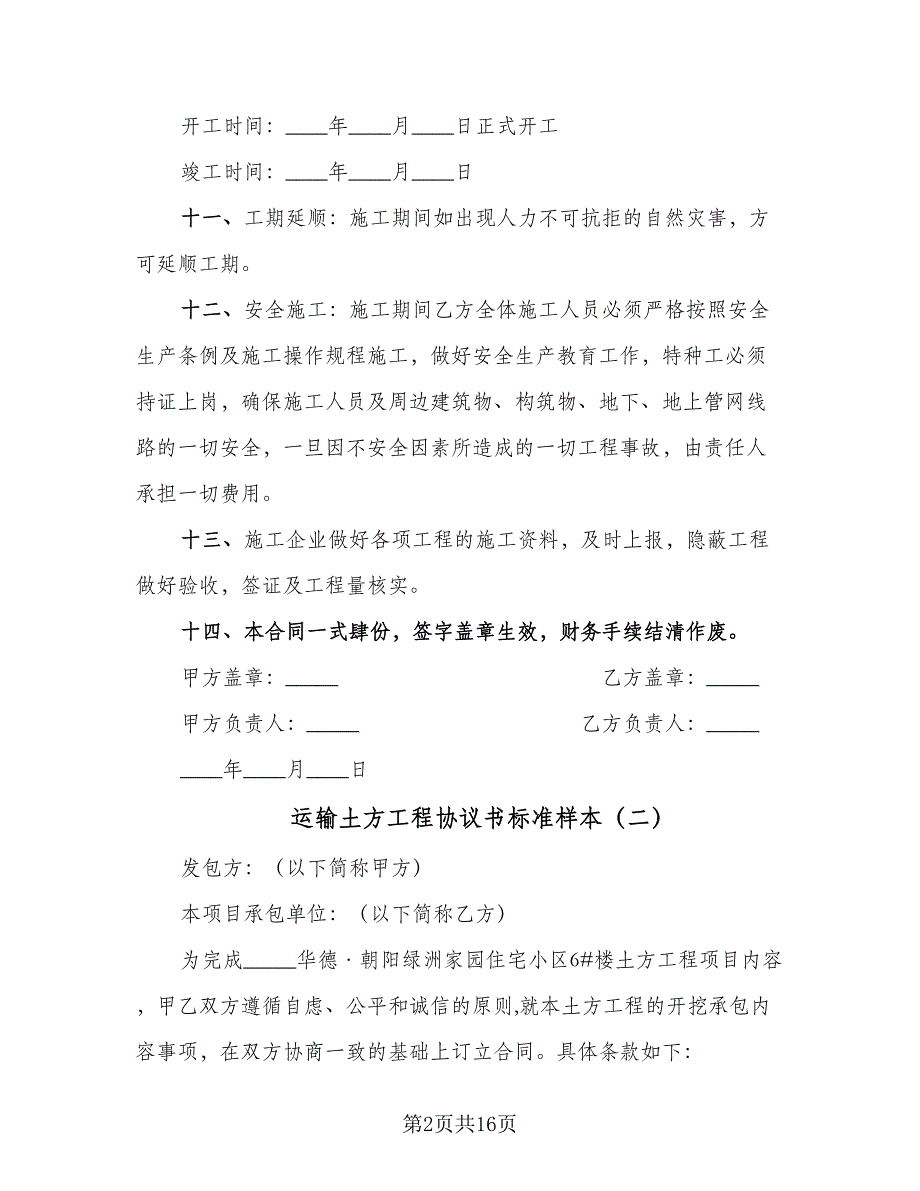 开工时间：____年____月____日正式开工
竣工时间：____年____月____日
十一、工期延顺：施工期间如出现人力不可抗拒的自然灾害，方
可延顺工期。
十二、安全施工：施工期间乙方全体施工人员必须严格按照安全
生产条例及施工操作规程施工，做好安全生产教育工作，特种工必须
持证上岗，确保施工人员及周边建筑物、构筑物、地下、地上管网线
路的一切安全，一旦因不安全因素所造成的一切工程事故，由责任人
承担一切费用。
十三、施工企业做好各项工程的施工资料，及时上报，隐蔽工程
做好验收，签证及工程量核实。
十四、本合同一式肆份，签字盖章生效，财务手续结清作废。
甲方盖章：_____ 乙方盖章：_____
甲方负责人：_____ 乙方负责人：_____
____年____月____日
运输土方工程协议书标准样本（二）
发包方：（以下简称甲方）
本项目承包单位：（以下简称乙方）
为完成_____华德·朝阳绿洲家园住宅小区6#楼土方工程项目内容
，甲乙双方遵循自虑、公平和诚信的原则,就本土方工程的开挖承包内
容事项，在双方协商一致的基础上订立合同。具体条款如下:
第2页共16页